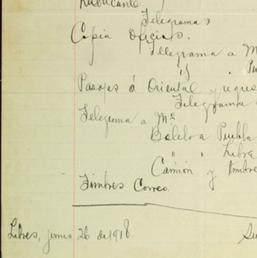 Lubricante
Telegramas
Copia Oficios.
Telegrama a M
" " Pu
Pasajes á Oriental y regres
Telegrama
Telegrama a Me
Boleto a Puebla
" " Libre
Camión y
Timbres Correo.
Libres, junio 26 de 1918.
Su